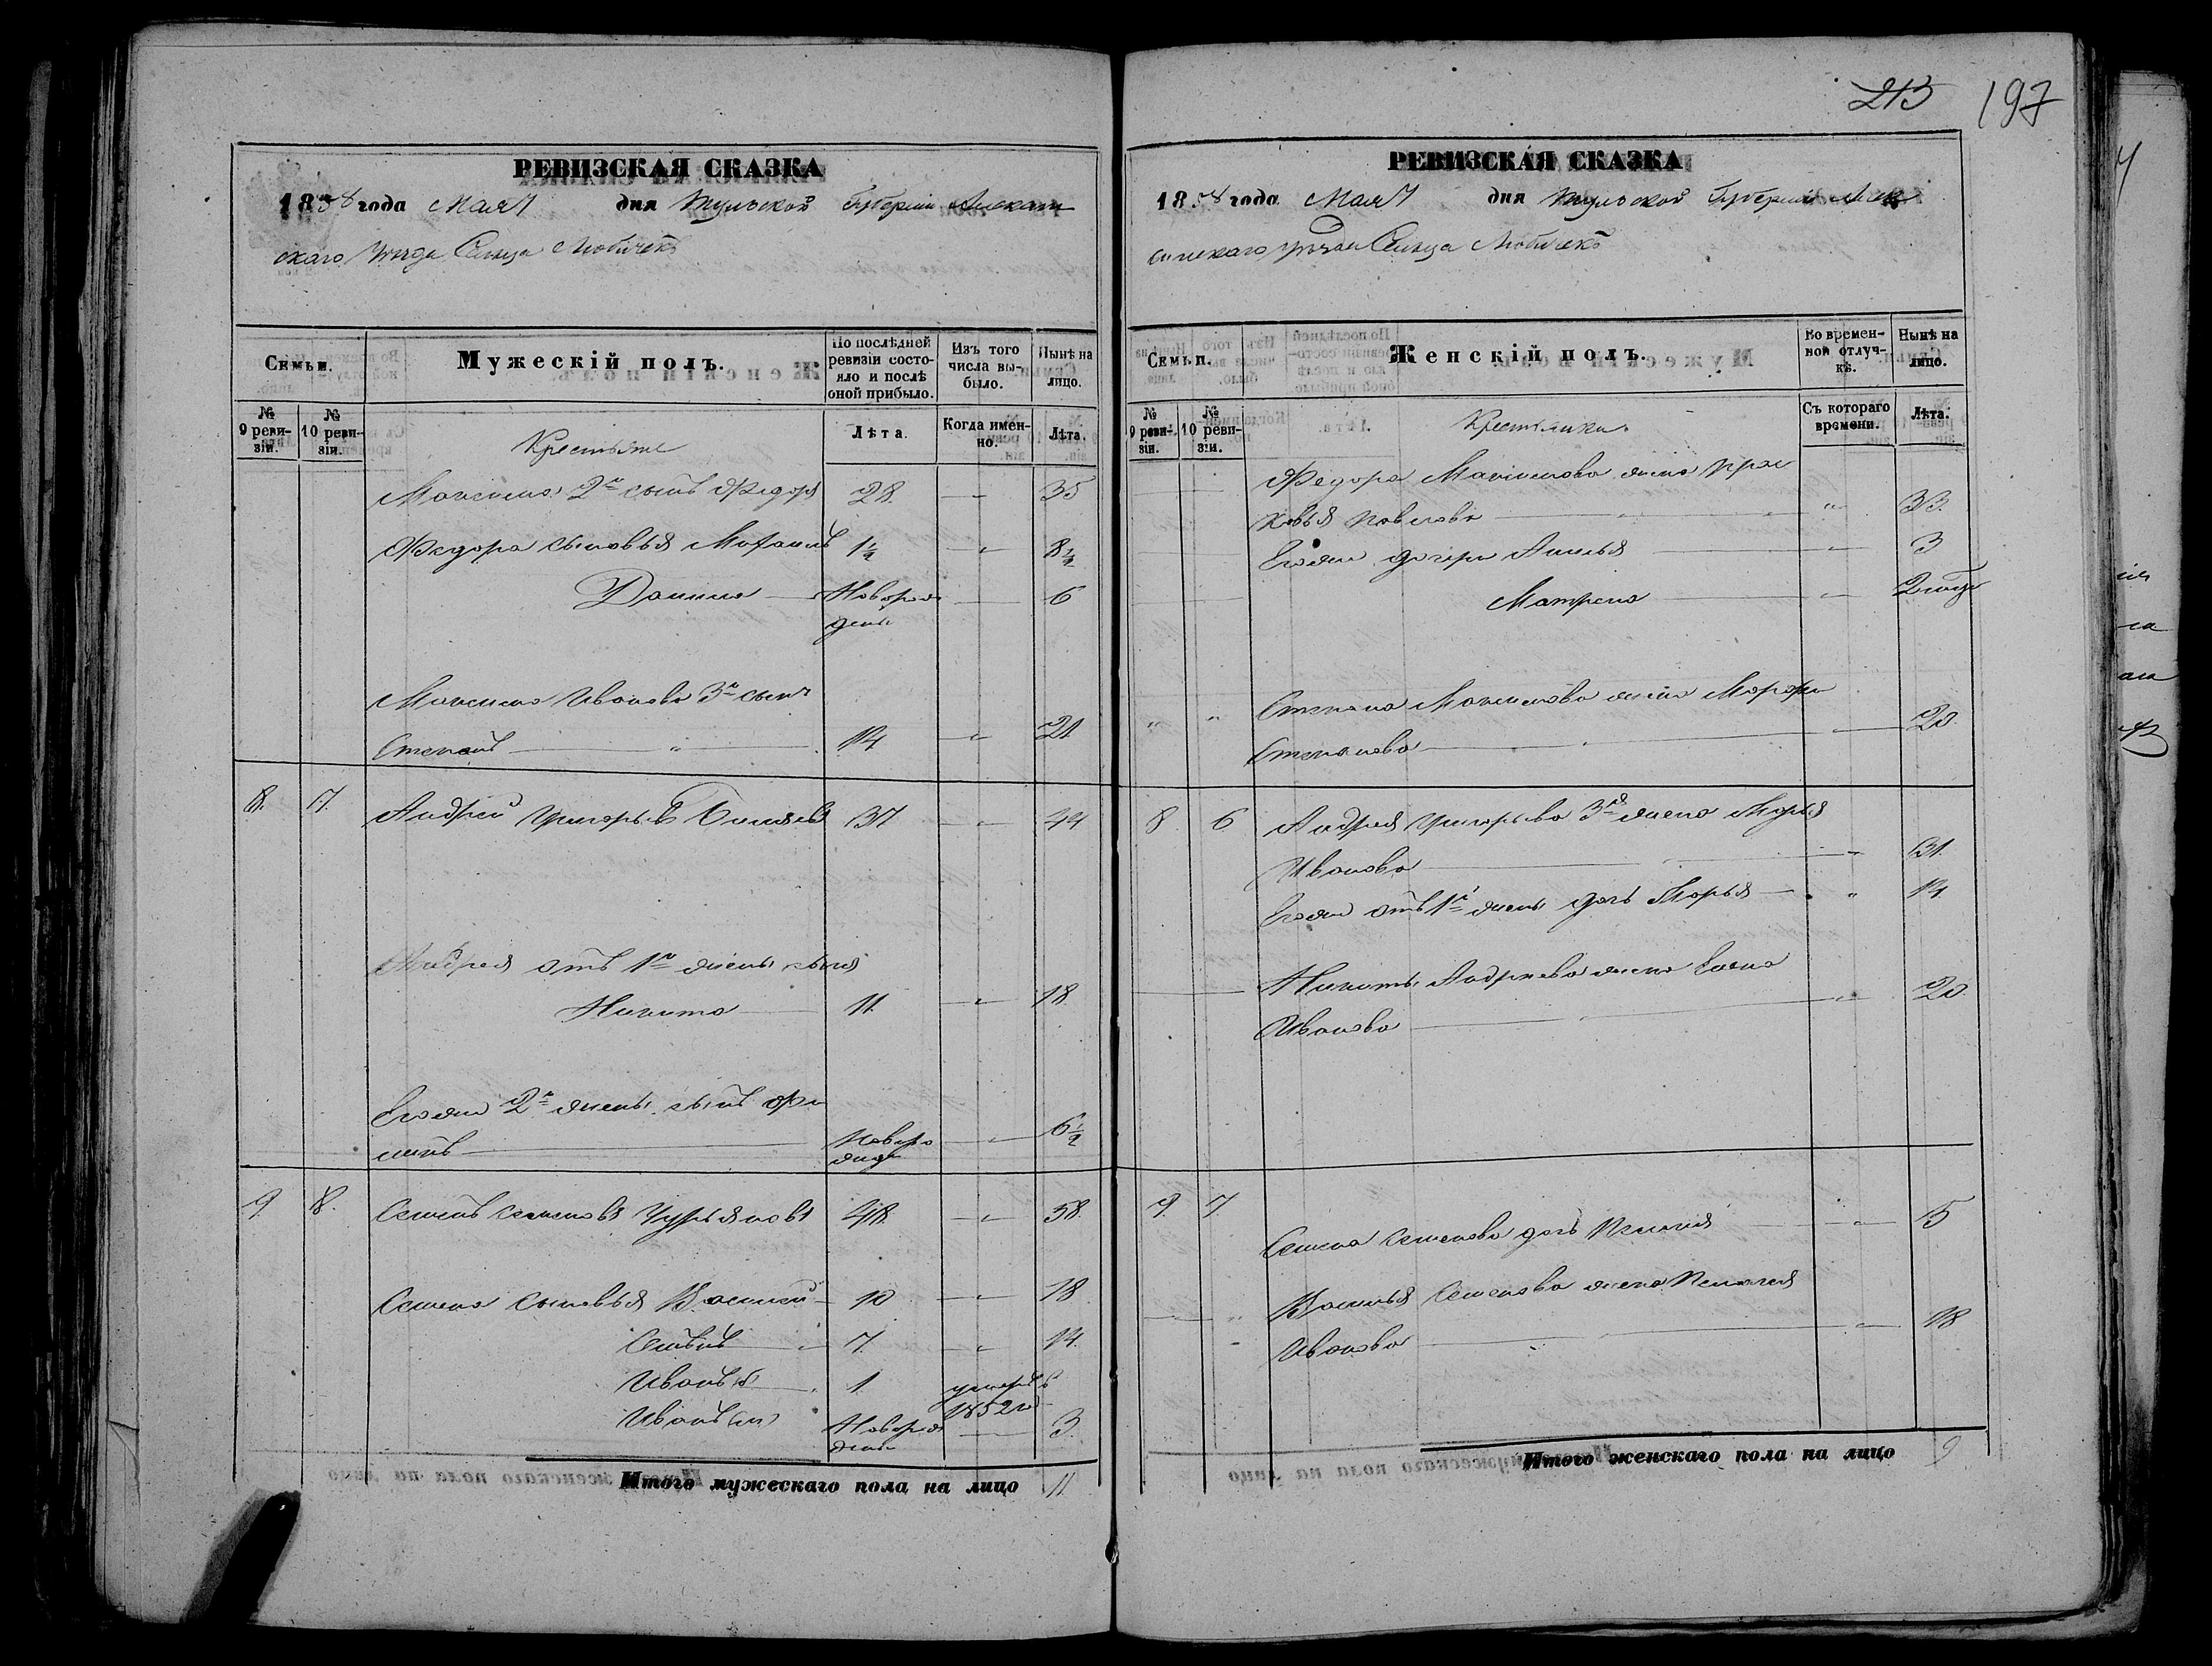 213 197
РЕВИЗСКАЯ СКАЗКА
1858 года Мая 7 дня Тульской Губернии Алексин
скаго Уезда Сельца Любичекъ
Семьи.
Мужескій полъ.
По послѣдней ревизіи состояло и послѣ оной прибыло.
Изъ того числа выбыло.
Нынѣ на лицо.
№ 9 ревизіи.
№ 10 ревизіи.
Крестьяне
Лѣта.
Когда именно.
Лѣта.
Максима 2й сынъ Федоръ 28 — 35
Федора сыновья 1½ " 8½
Данило Новорож 6
денъ
Максима Иванова 3й сынъ
Степанъ " 14 " 21
8. 7. Андрей Григорьевъ 37 " 44
Андрея отъ 1й жены сынъ
Никита 11 " 18
Егоже 2й жены сынъ Фи
липъ Новоро " 6½
жде
9. 8. Семенъ Семеновъ 48 " 58
Семена сыновья Василий 10 " 18
7 " 14
Иванъ б 1 умеръ
1852 го
Иванъ (м) Новорож 3
денъ
Итого мужескаго пола на лицо 11
РЕВИЗСКАЯ СКАЗКА
1858 года Мая 7 дня Тульской Губернии Алек
синскаго уезда Сельца Любичекъ
Семьи.
Женскій полъ.
Во временной отлучкѣ.
Нынѣ на лицо.
№ 9 ревизіи.
№ 10 ревизіи.
Крестьянки
Съ котораго времени.
Лѣта.
Федора Максимова жена Прас
ковья Павлова " 33
Егоже дочери " 3
Матрена " 2
" " Степана Максимова жена Марфа
Степанова " 20
8 6 Андрея Григорьева 3я жена Марья
Иванова " 31
Егоже отъ 1й жены дочь Марья " 14
Никиты Андреева жена Елена
Иванова " 20
9. 7 Семена Семенова дочь " 5
Василья Семенова жена Пелагея
Иванова " 18
Итого женскаго пола на лицо 9